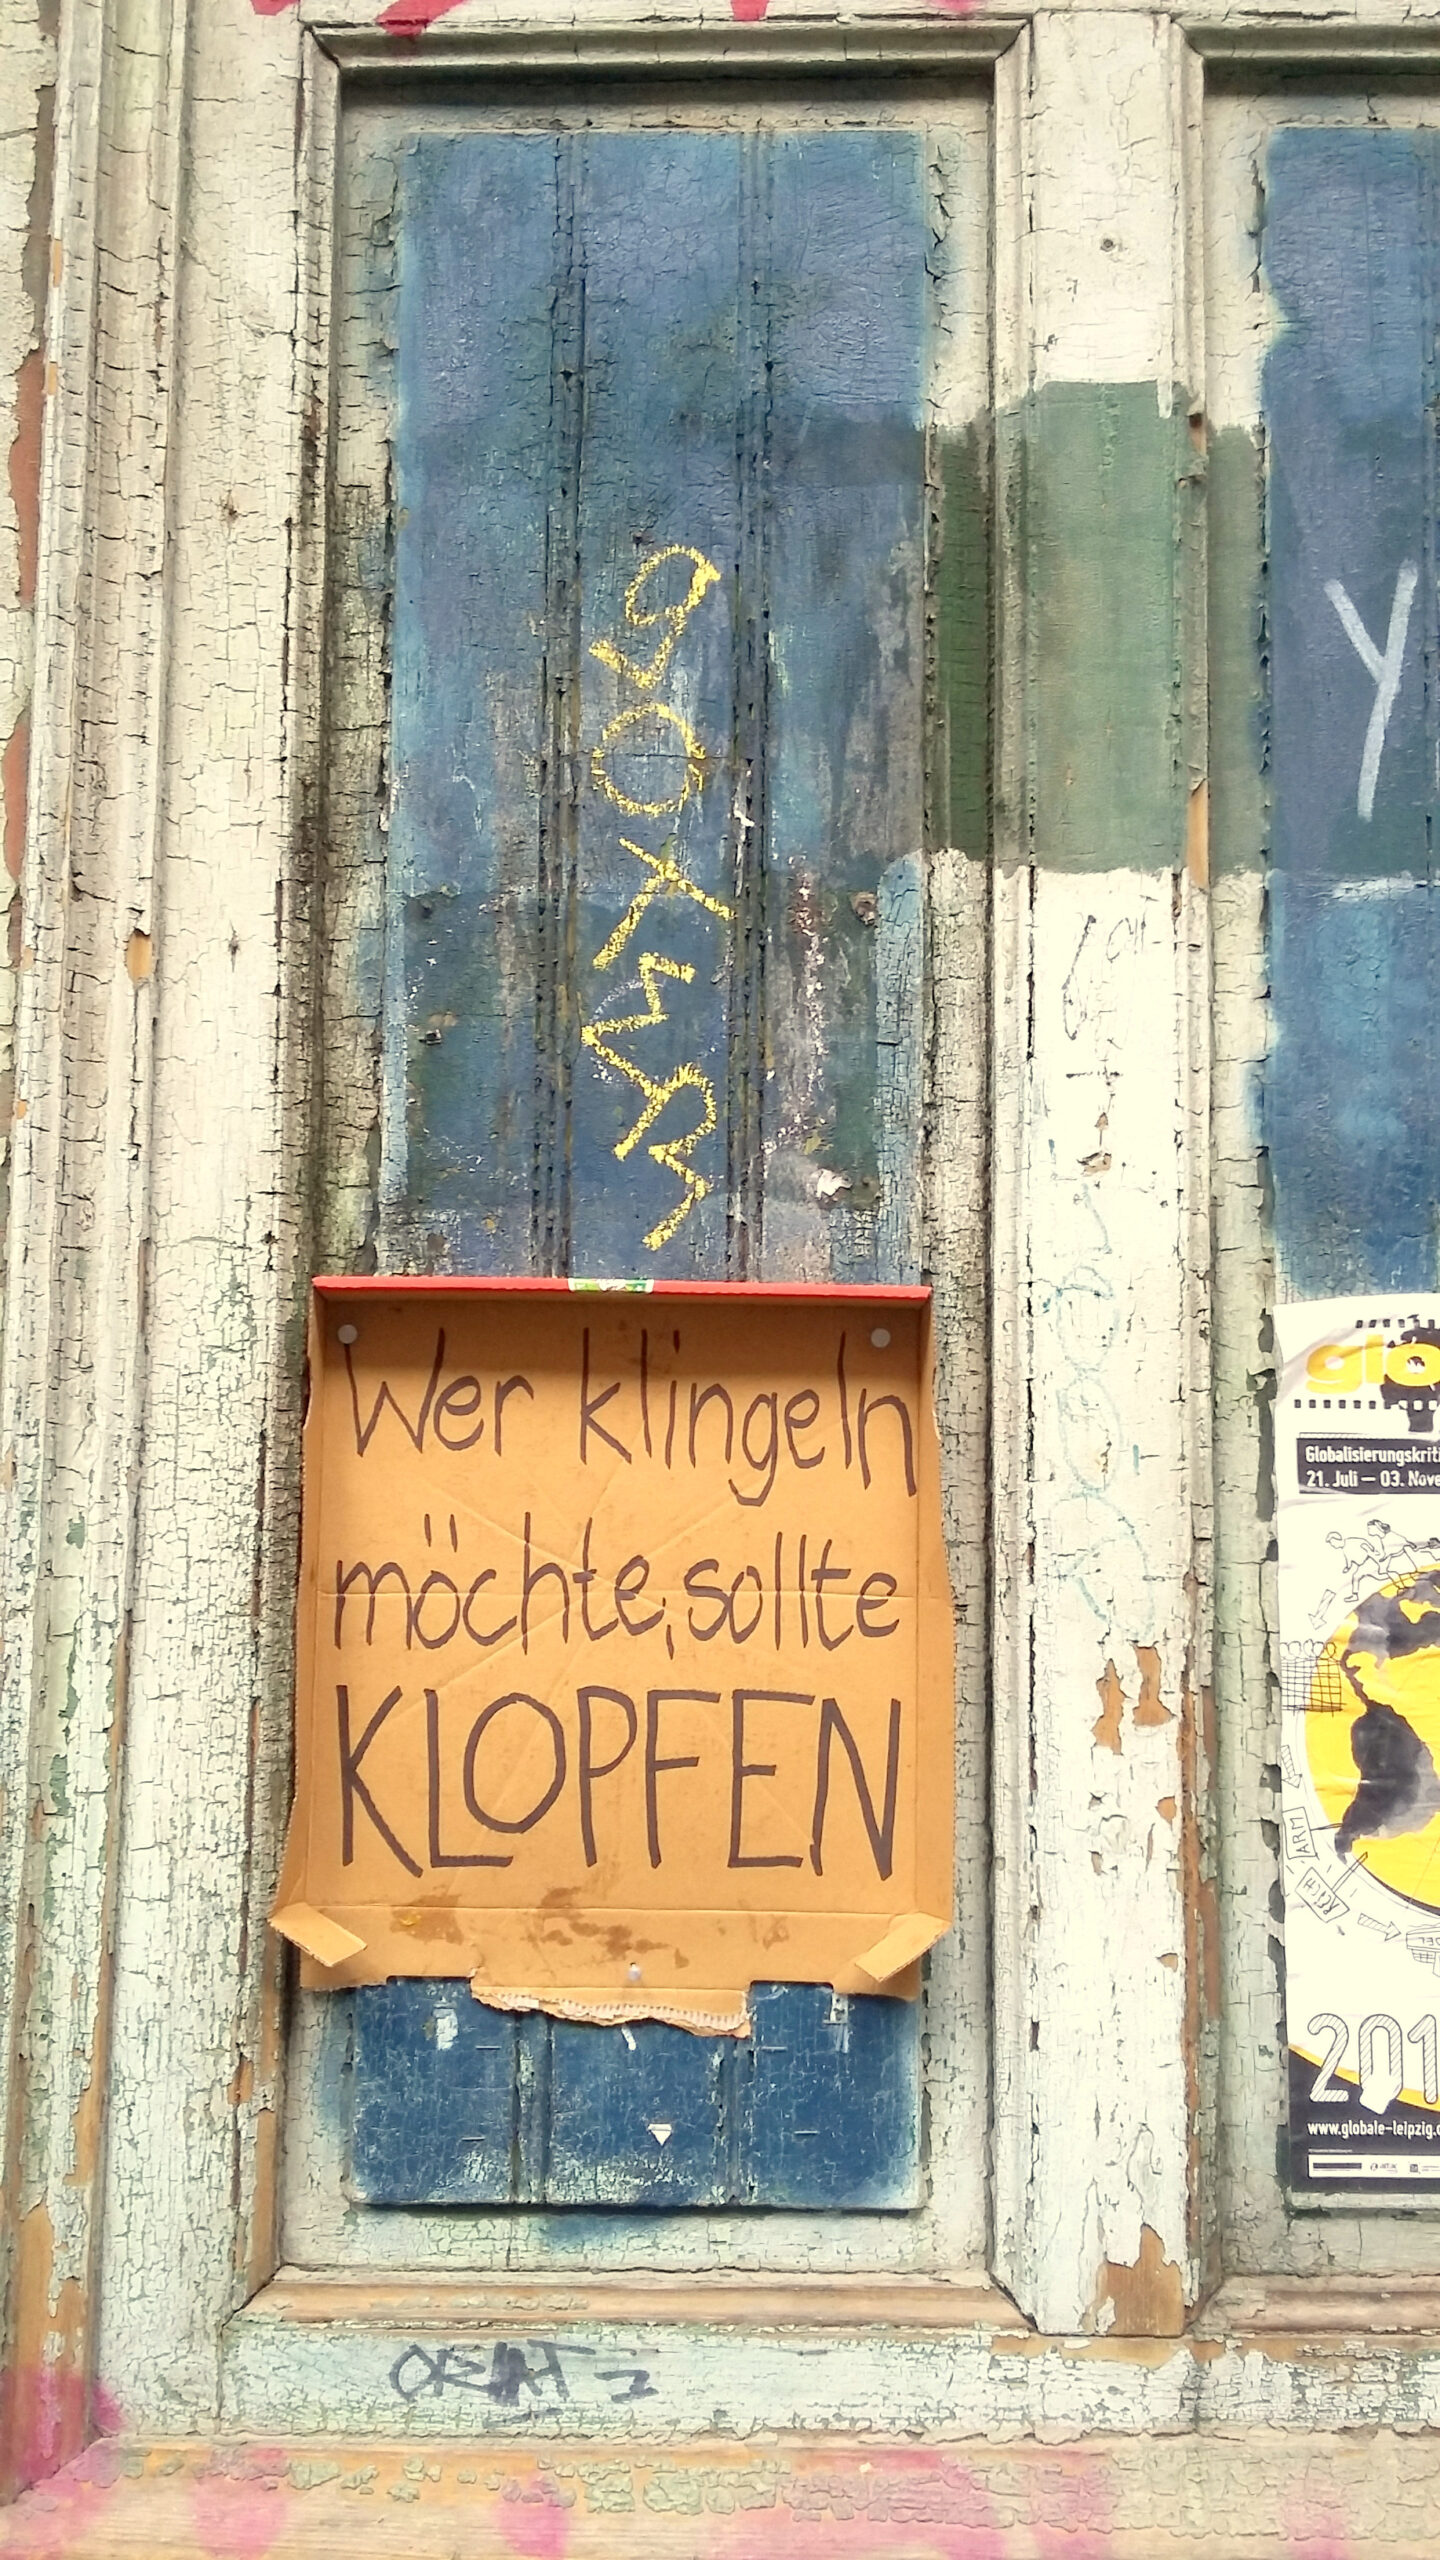 Wer klingeln
möchte, sollte
KLOPFEN
Y
glo
Globalisierungskriti
21. Juli — 03. Nove
ARM
201
www.globale-leipzig.d